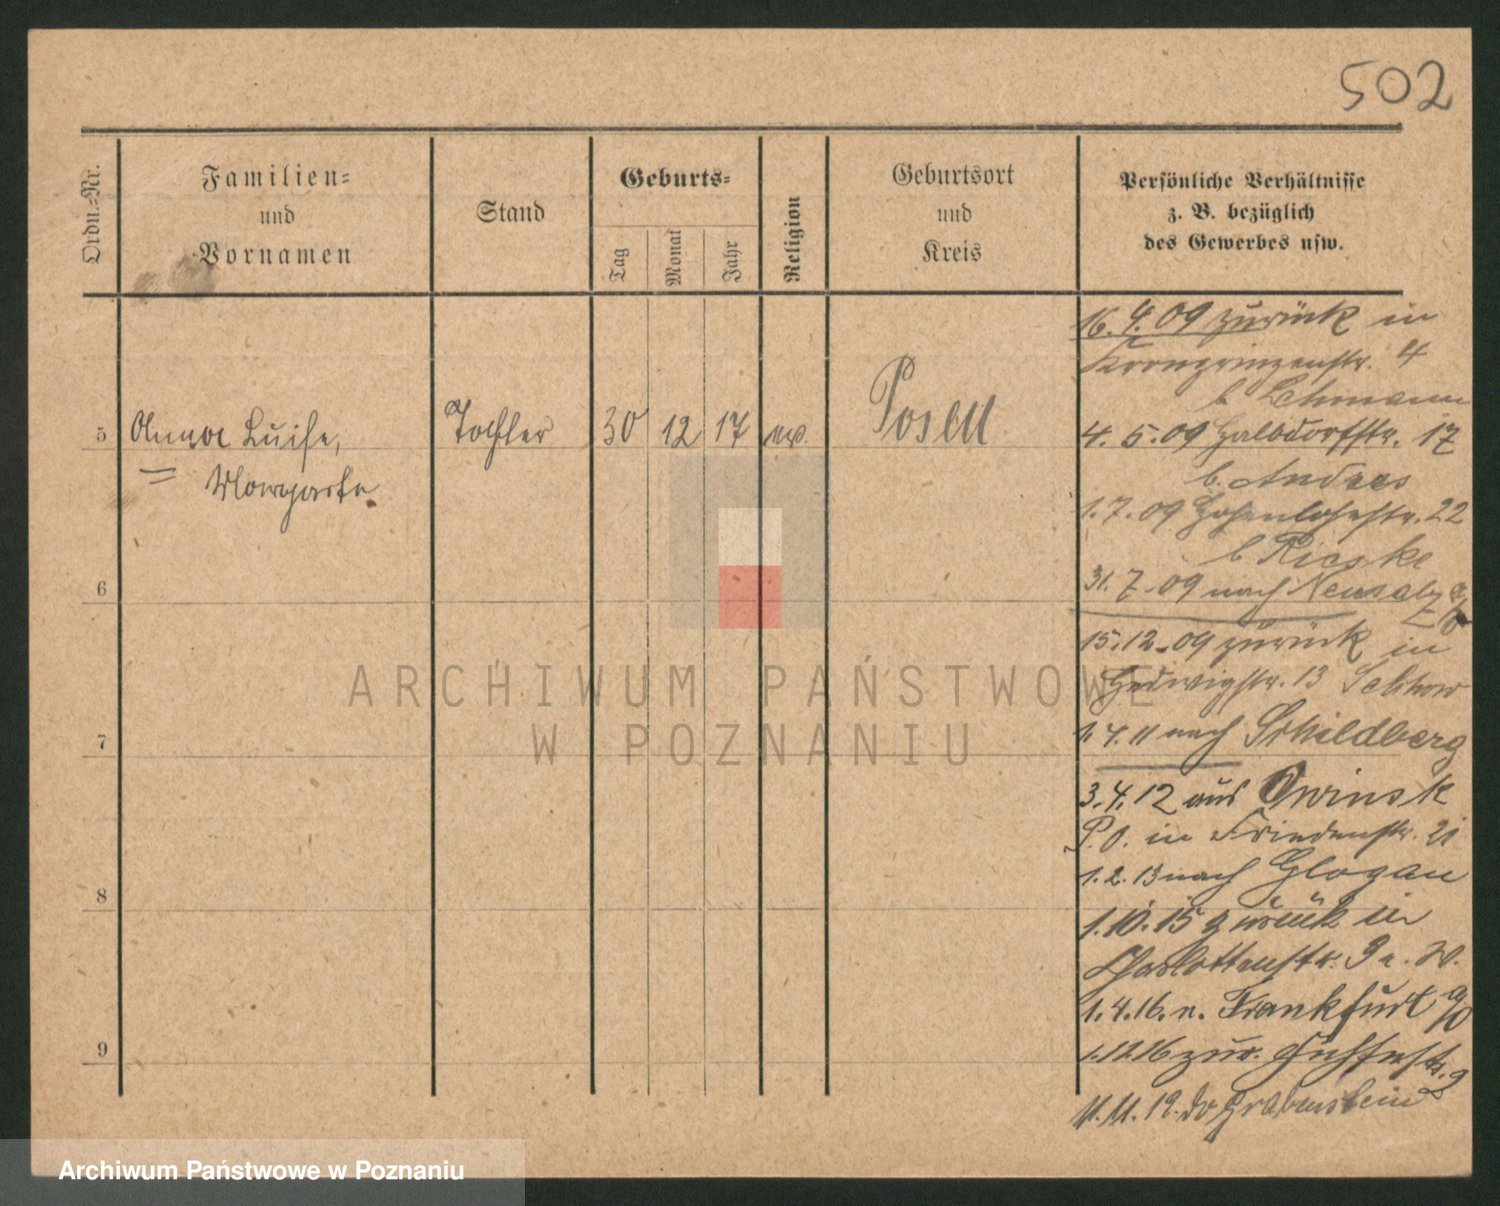 502
Ordn.-Nr.
Familien-
und
Vornamen
Stand
Geburts-
Tag
Monat
Jahr
Religion
Geburtsort
und
Kreis
Persönliche Verhältnisse
z. B. bezüglich
des Gewerbes usw.
5
Anna Luise,
Margarete
Tochter
30
12
17
ev.
Posen
6
7
8
9
16.4.09 zurück in
Kronprinzenstr. 4
b Lehmann
4.5.09 Halbdorfstr. 17
b. Andres
1.7.09 Hohenlohestr. 22
b Rieske
31.7.09 nach Neusalz a/O
15.12.09 zurück in
Hedwigstr. 13
1.4.11 nach Schildberg
3.4.12 aus Owinsk
P.O. in Friedenstr. 21
1.2.13 nach Glogau
1.10.15 zurück in
Charlottenstr. 9
1.4.16. n. Frankfurt a/O
1.12.16 zur.
11.11.19. do Grabenstein
ARCHIWUM PAŃSTWOWE
W POZNANIU
Archiwum Państwowe w Poznaniu